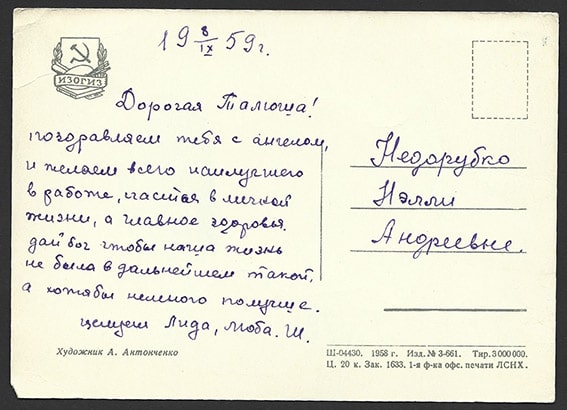 19 8/IX 59 г.
ИЗОГИЗ
Дорогая Талюша!
поздравляем тебя с ангелом,
и желаем всего наилучшего
в работе, счастья в личной
жизни, а главное здоровья.
дай бог чтобы наша жизнь
не была в дальнейшем такой,
а хотябы немного получше.
целуем Лида, Люба. Ш.
Художник А. Антонченко
Недорубко
Нэлли
Андреевне.
Ш-04430. 1958 г. Изд. № 3-661. Тир. 3 000 000.
Ц. 20 к. Зак. 1633. 1-я ф-ка офс. печати ЛСНХ.